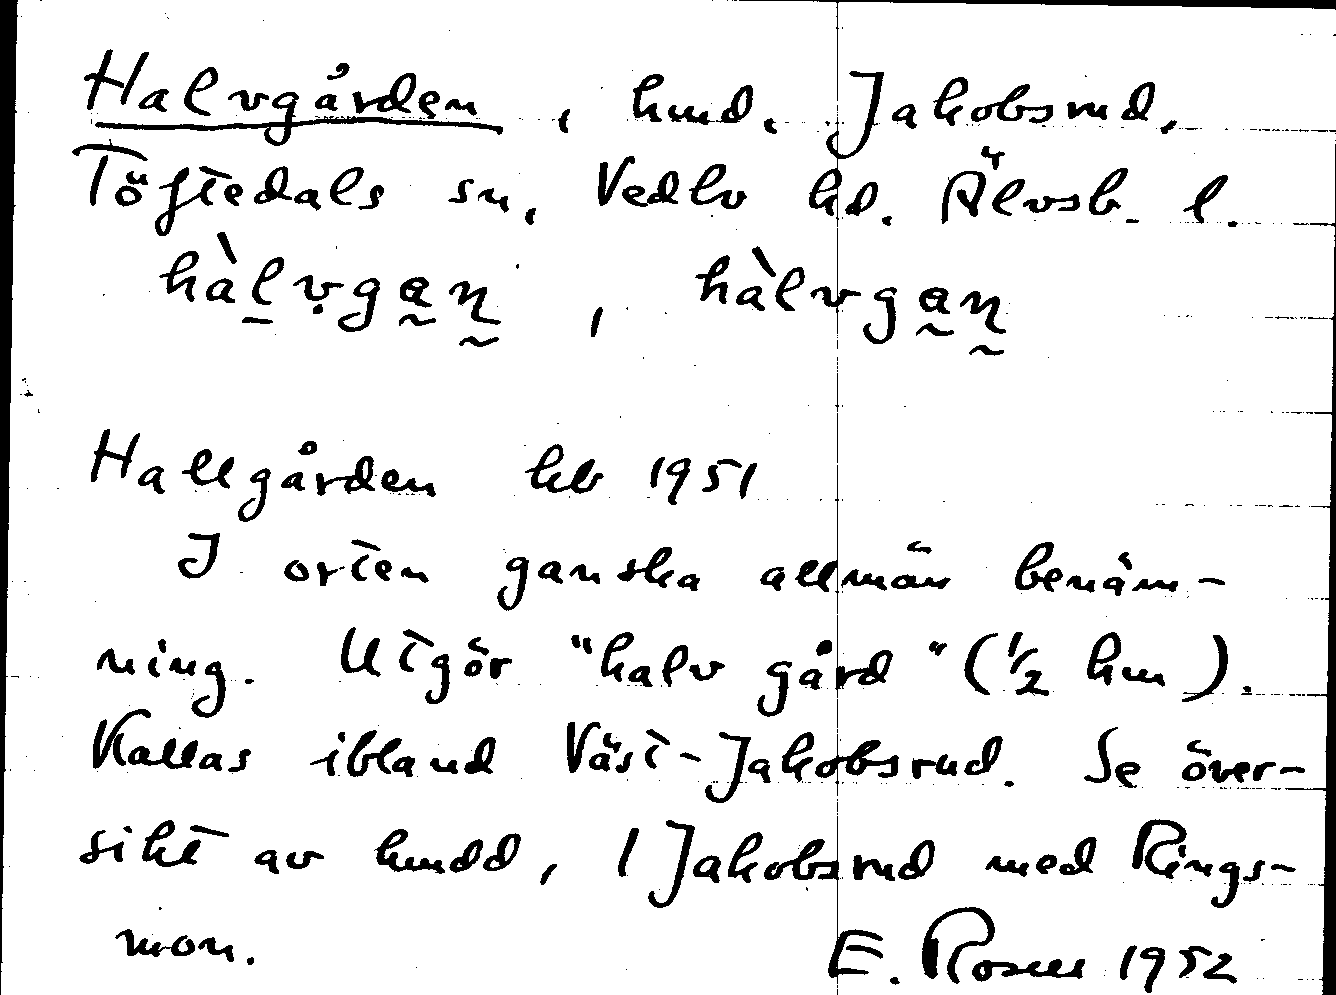 Halvgården, hmd. Jakobsrud,
Töftedals sn, Vedbo hd. Älvsb. l.
hàl̠ṿga̰n̰, hàlvga̰n̰
Hallgården kb 1951
I orten ganska allmän benäm-
ning. Utgör "halv gård" (½ hm).
Kallas ibland Väst-Jakobsrud. Se över-
sikt av hmdd, 1 Jakobsrud med Rings-
mon.
E. Rosell 1952